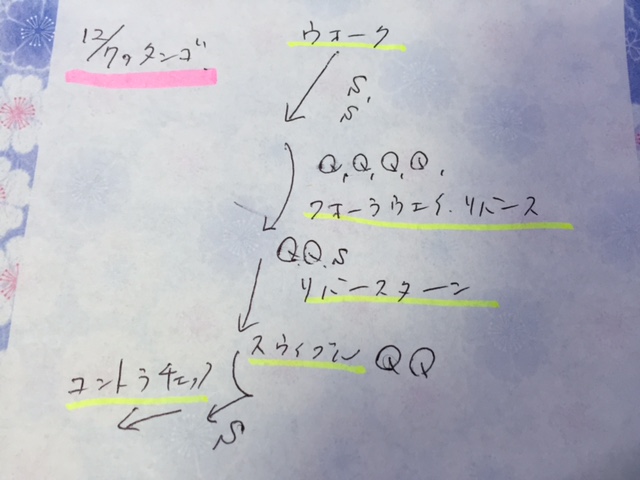 12/7のタンゴ
ウォーク
S,
S
Q,Q,Q,Q,
フォーラウェイ.リバース
Q.Q.S
リバースターン
スウィブル QQ
コントラチェック
S